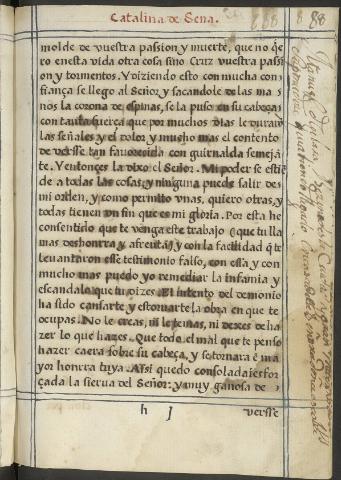 Catalina de Sena.
88
molde de vuestra passion y muerte, que no q̃e
ro enesta vida otra cosa sino Cruz vuestra passi
on y tormentos. Y diziendo esto con mucha con
fiança se llego al Señor, y sacandole de las ma
nos la corona de espinas, se la puso en su cabeça
con tanta fuerça que por muchos dias le duraro
las señales y el dolor y mucho mas el contento
de versse tan favorescida con guirnalda semejã
te. Y entonces la dixo el Señor. Mi poder se estiē
de a todas las cosas, y ninguna puede salir des
mi orden, y como permito unas, quiero otras, y
todas tienen un fin que es mi gloria. Por esta he
consentido que te venga este trabajo q̃ que tu lla
mas deshonrra y afrenta, y con la facilidad q̃ te
levantaron esse testimonio falso, con essa y con
mucho mas puedo yo remediar la infamia y
escandalo que tu dizes. El intento del demonio
ha sido cansarte y estorvarte la obra en que te
ocupas. No le creas, ni le temas, ni dexes de ha
zer lo que hazes. Que todo el mal que te penso
hazer caera sobre su cabeça, y se tornara ē ma
yor honrra tuya. Assi quedo consolada y esfor
çada la sierva del Señor: y muy ganosa de
h J
versse